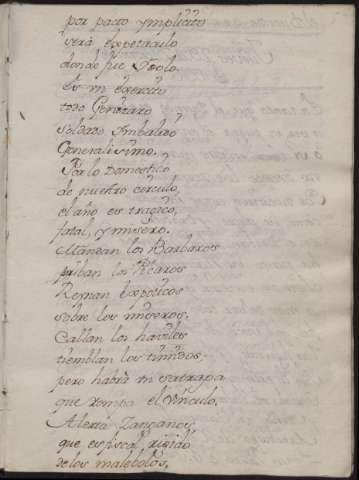 por pacto ymplicito
será expetaculo
donde fue Ydolo.
Es un exercito
todo Genizaro
soldado Imbalido
Generalisimo.
Por lo Domestico
de nuestro circulo
el año es tragico,
fatal, y misero.
Mandan los Barbaros
priban los Picaros
Reynan expoticos
sobre los miseros.
Callan los haviles
tiemblan los timidos.
pero habrá un satrapa
que rompa el vinculo.
Alerta Zanganos
que es fiscal rigido
de los malebolos.